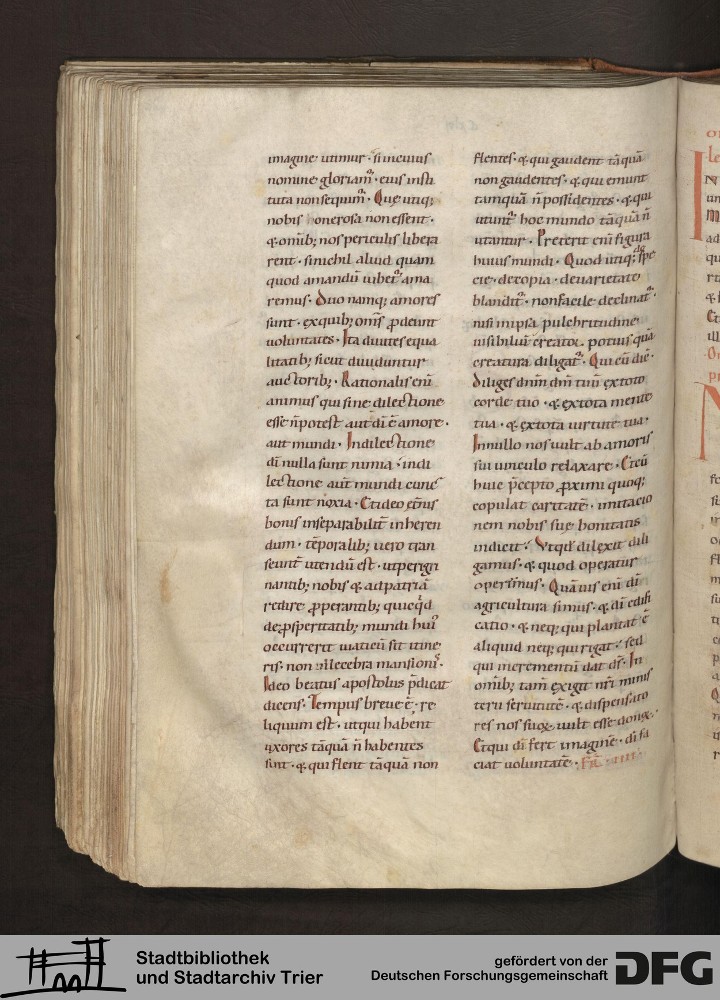 imagine utimur · si in cuius
nomine gloriam᷑ · eius insti
tuta non sequim᷑ · Que utiq;
nobis honerosa non essent ·
& omib; nos periculis libera
rent · si nichil aliud quam
quod amandū iubet᷑ ama
remus · Duo namq; amores
sunt · ex quib; oms̄ ꝓdeunt
uoluntates · Ita diuites equa
litatib; sicut diuiduntur
auctorib; · Rationalis eni̅
animus qui sine dilectione
esse n̄ potest aut di̅ ē amore ·
aut mundi · In dilectione
di̅ nulla sunt nimia · in di
lectione aut̅ mundi cunc
ta sunt noxia · Et ideo et̅nis
bonis inseparabilit̅ inheren
dum · te̅poralib; uero tran
seunt̅ utendū est · ut peregri
nantib; nobis & ad patria̅
redire ꝓperantib; quicq̇d
de ꝓsperitatib; mundi hui᷒
occurrerit uiaticū sit itine
ris · non illecebra mansionis ·
Ideo beatus apostolus p̅dicat
dicens · Tempus breue ē · re
liquum est · ut qui habent
uxores ta̅qua̅ n̄ habentes
sint · & qui flent ta̅qua̅ non
flentes · & qui gaudent ta̅qua̅
non gaudentes · & qui emunt
tamqua̅ n̄ possidentes · & qui
utunt᷑ hoc mundo ta̅qua̅ n̄
utantur · Preterit eni̅ figura
huius mundi · Quod utiq; de spe
cie · de copia · de uarietate
blandit᷑ · non facile declinat᷑ ·
nisi in ipsa pulchritudine
uisibiliū creator potius qua̅
creatura diligat᷑ · Qui cū die ·
Diliges dnm̅ dm̅ tuū ex toto
corde tuo · & ex tota mente
tua · & ex tota uirtute tua ·
In nullo nos uult ab amoris
sui uinculo relaxare · Et cū
huic p̅cepto ꝓximi quoq;
copulat caritate̅ · imitacio
nem nobis sue bonitatis
indicit · Ut qd̅ dilexit dili
gamus · & quod operatur
operemus · Qua̅uis eni̅ di̅
agricultura simus · & di̅ edifi
catio · & neq; qui plantat ē
aliquid neq; qui rigat · sed
qui incrementū dat ds̅ · In
omib; tam̅ exigit nr̅i minis
terii seruitute̅ · & dispensato
res nos suoꝝ uult esse donoꝝ ·
Et qui di̅ fert imagine̅ · di̅ fa
ciat uoluntate̅ ·
Stadtbibliothek
und Stadtarchiv Trier
gefördert von der
Deutschen Forschungsgemeinschaft
DFG